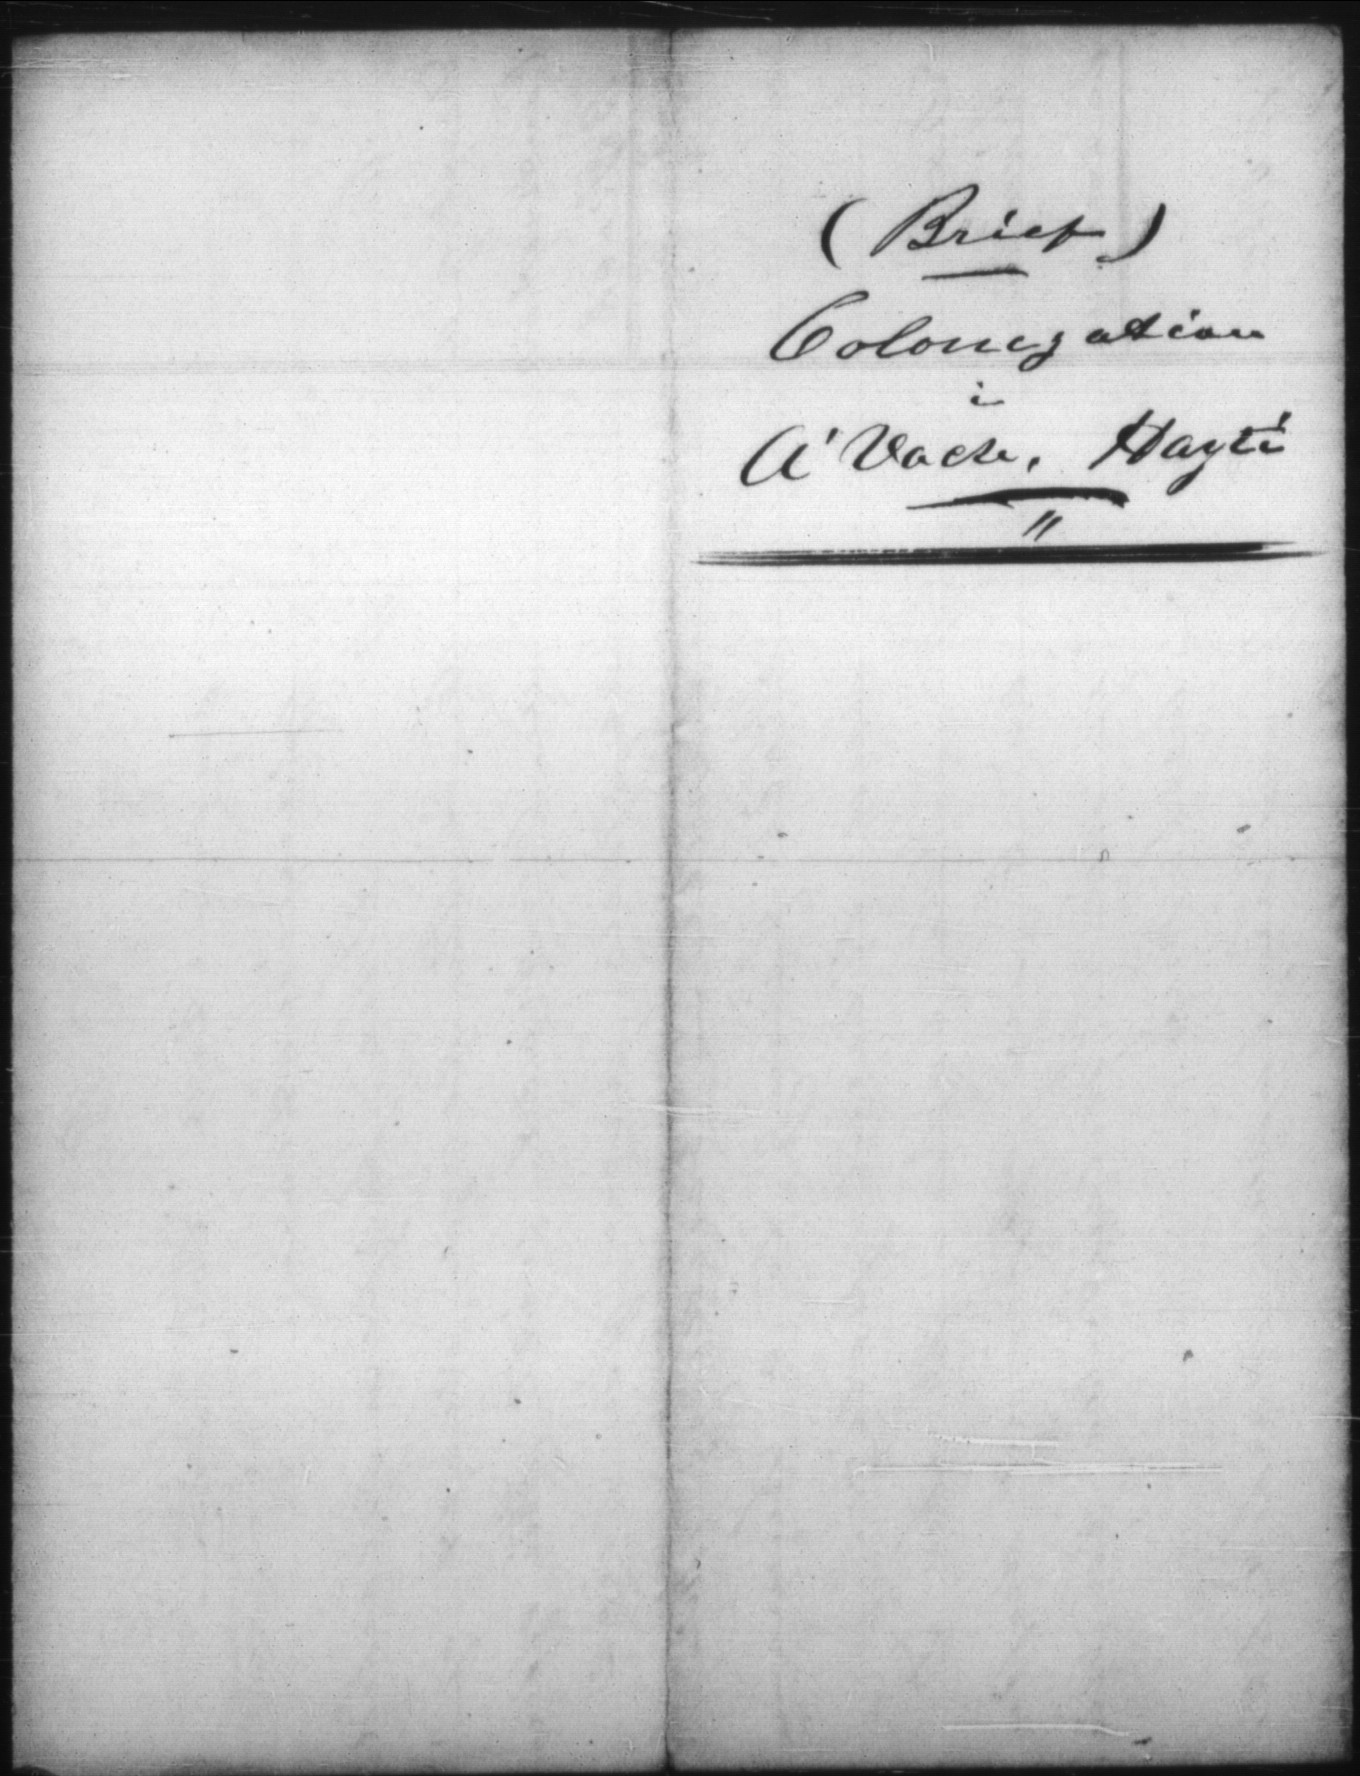 (Brief)
Colonization
in
A'Vache, Hayti
"